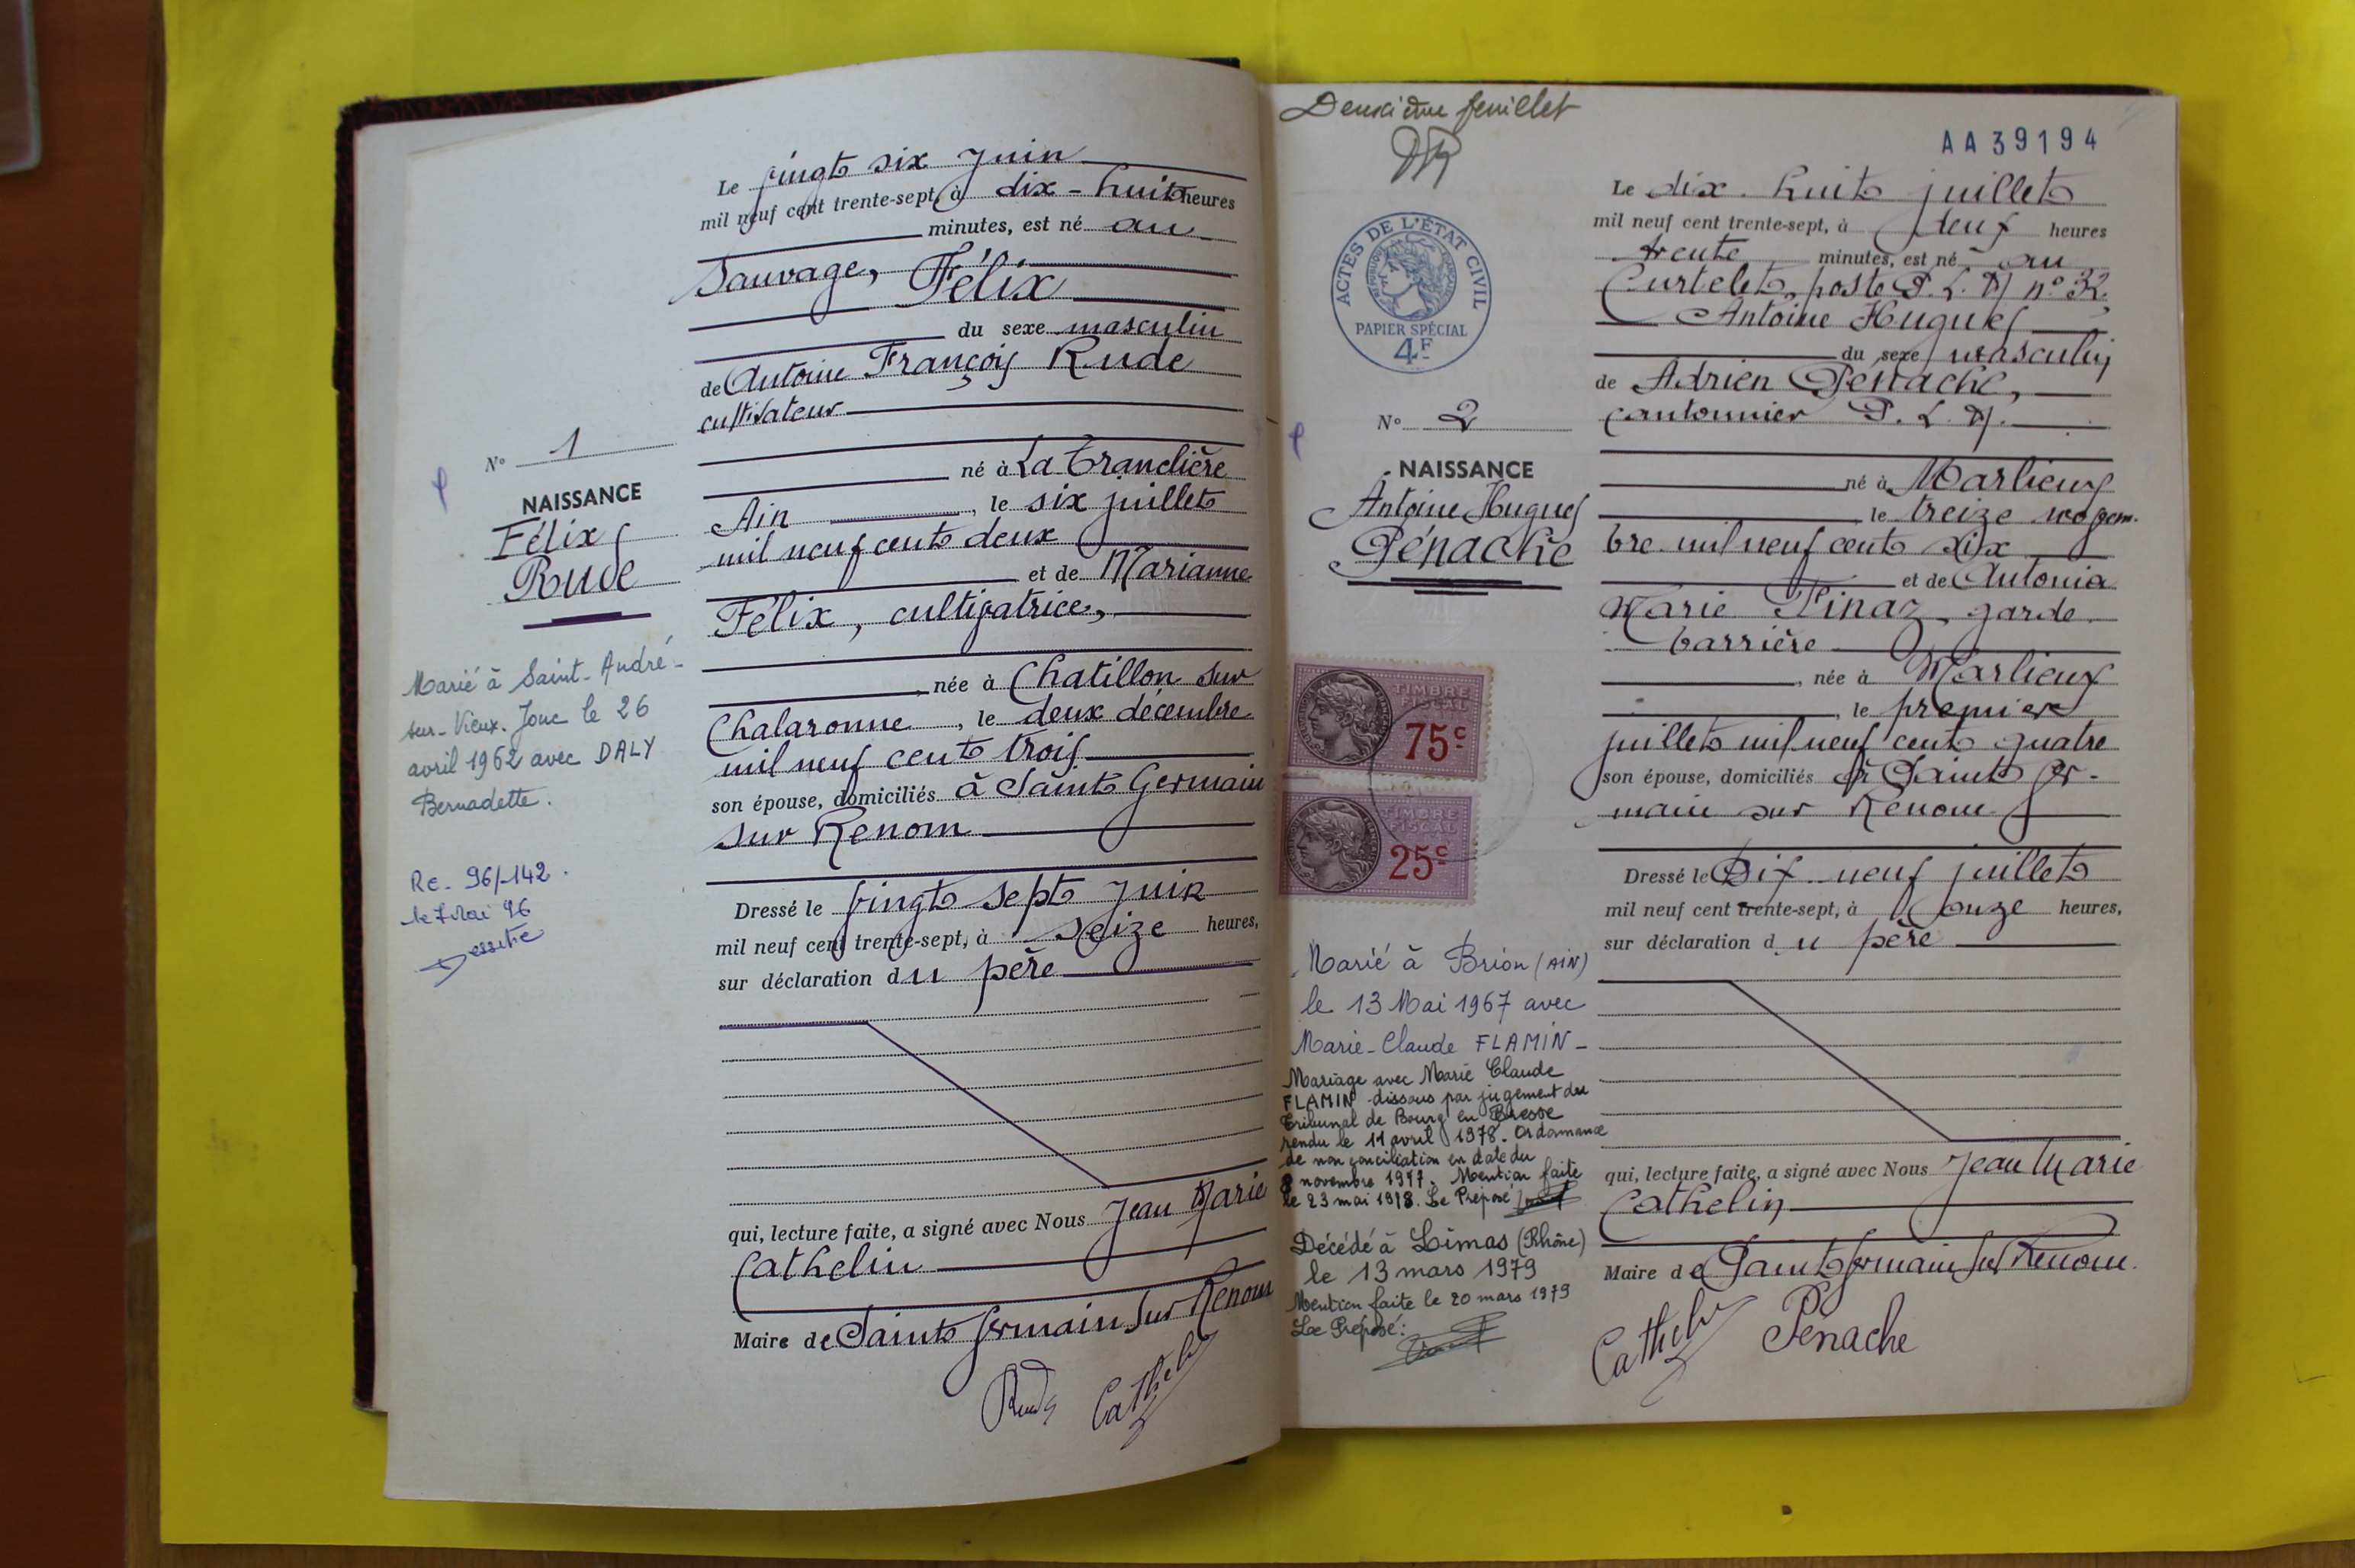 Le vingt six Juin
mil neuf cent trente-sept, à dix-huit heures
minutes, est né au
Sauvage, Félix
du sexe masculin
de Antoine François Rude
cultivateur
né à La Tranclière
Ain, le six juillet
mil neuf cent deux
et de Marianne
Félix, cultivatrice,
, née à Chatillon sur
Chalaronne, le deux décembre
mil neuf cent trois
son épouse, domiciliés à Saint Germain
sur Renom
Dressé le vingt sept Juin
mil neuf cent trente-sept, à seize heures,
sur déclaration du père
qui, lecture faite, a signé avec Nous Jean Marie
Cathelin
Maire de Saint Germain sur Renom
Rude Cathelin
N° 1
NAISSANCE
Félix
Rude
Marié à Saint-André-
sur-Vieux-Jonc le 26
avril 1962 avec DALY
Bernadette.
Re. 96/142.
le 7 Mai 96
Deuxième feuillet
AA39194
ACTES DE L'ÉTAT CIVIL
PAPIER SPÉCIAL
4F
N° 2
NAISSANCE
Antoine Hugues
Pénache
TIMBRE
FISCAL
75c
TIMBRE
FISCAL
25c
Marié à Brion (AIN)
le 13 Mai 1967 avec
Marie-Claude FLAMIN-
Mariage avec Marie Claude
FLAMIN dissous par jugement du
Tribunal de Bourg en Bresse
rendu le 11 avril 1978. Ordonnance
de non conciliation en date du
8 novembre 1977. Mention faite
le 23 mai 1978. Le Préposé
Décédé à Limas (Rhône)
le 13 mars 1979
Mention faite le 20 mars 1979
Le Préposé:
Le dix-huit juillet
mil neuf cent trente-sept, à neuf heures
trente minutes, est né au
Curtelet, poste P.L.M n° 32.
Antoine Hugues
du sexe masculin
de Adrien Pénache,
cantonnier P.L.M.
né à Marlieux
le treize novem-
bre mil neuf cent dix
et de Antonia
Marie Finaz, garde
barrière
, née à Marlieux
, le premier
juillet mil neuf cent quatre
son épouse, domiciliés à Saint Ger-
main sur Renom
Dressé le Dix-neuf juillet
mil neuf cent trente-sept, à onze heures,
sur déclaration du père
qui, lecture faite, a signé avec Nous Jean Marie
Cathelin
Maire de Saint Germain sur Renom.
Cathelin Pénache